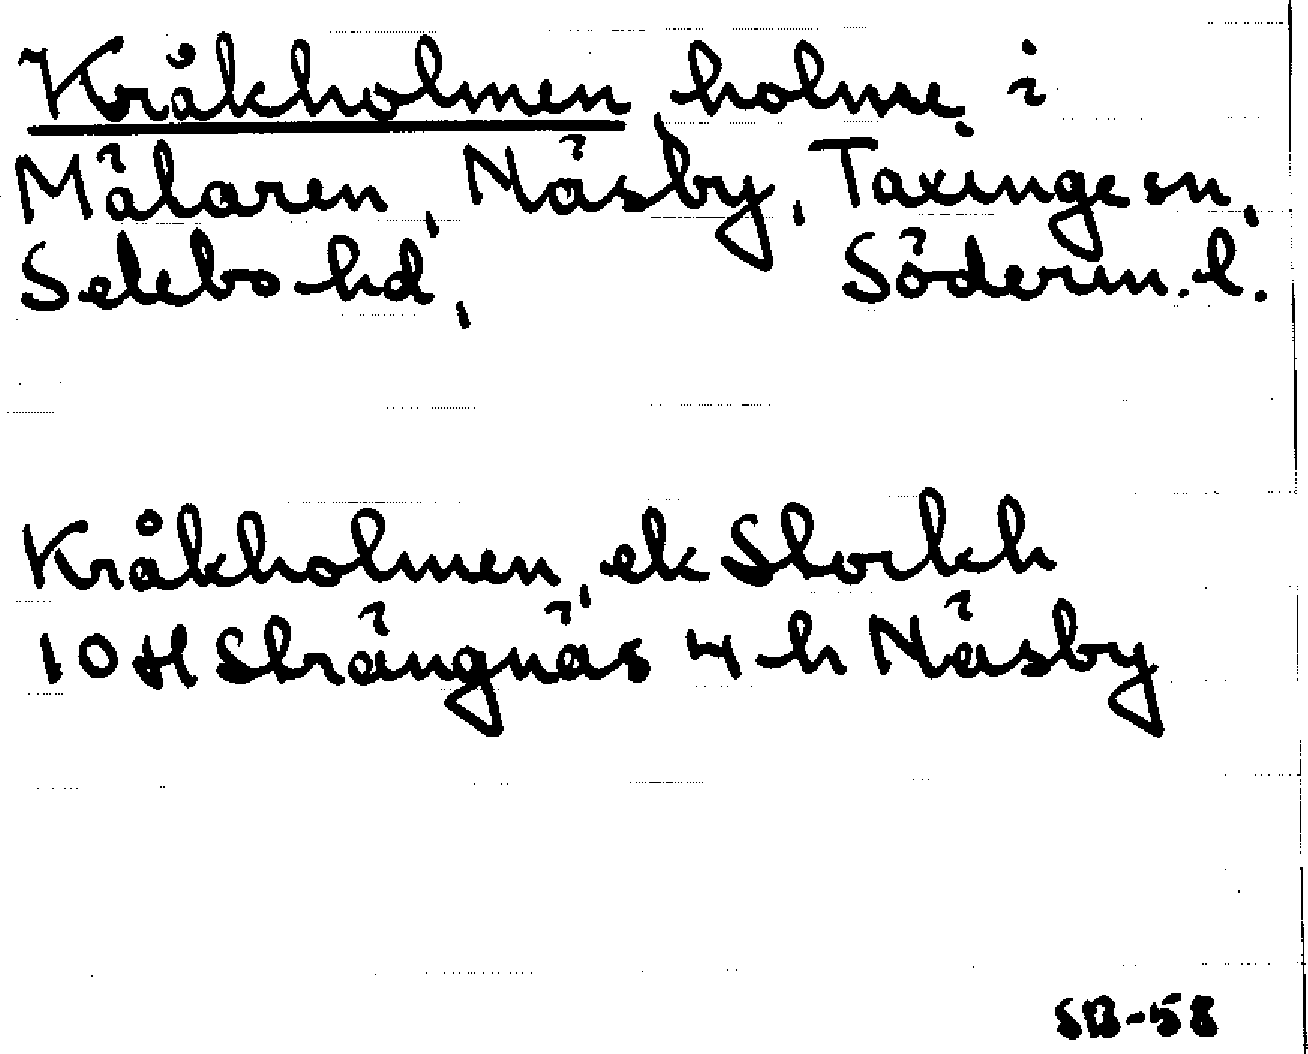 Kråkholmen, holme i
Mälaren, Näsby, Taxinge sn,
Selebo hd, Söderm. l.
Kråkholmen, ek Storkh
10 H Strängnäs 4 h Näsby
SB-58